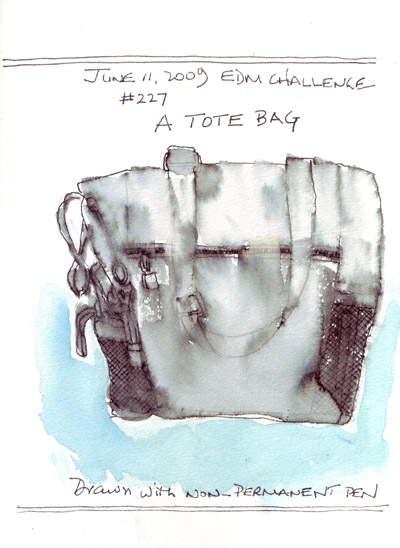 JUNE 11, 2009 EDM CHALLENGE
#227
A TOTE BAG
Drawn with NON-PERMANENT PEN